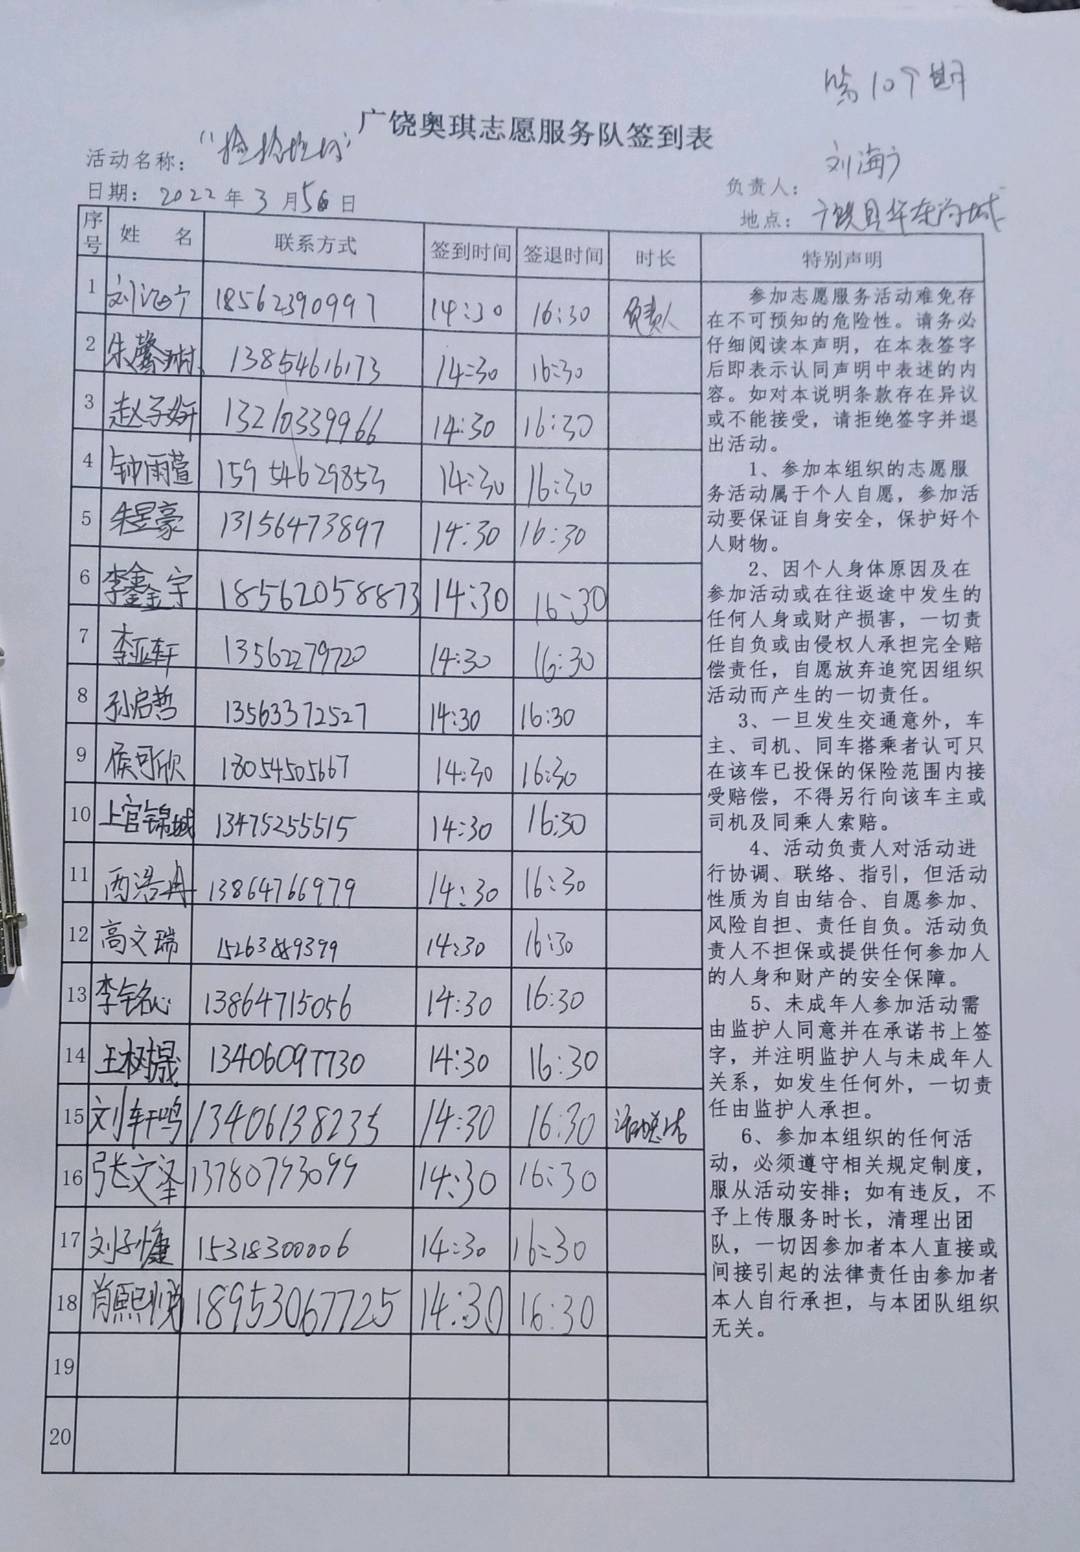 第109期
广饶奥琪志愿服务队签到表
活动名称：
负责人：刘海广
日期：2022年3月5日
地点：广饶县
序号 姓名 联系方式 签到时间 签退时间 时长 特别声明
1 刘海广 18562390997 14:30 16:30 负责人
2 朱馨 13854616173 14:30 16:30
3 赵子妍 13210339966 14:30 16:30
4 钟雨萱 15954629853 14:30 16:30
5 朱昱豪 13156473897 14:30 16:30
6 李鑫宇 18562058873 14:30 16:30
7 李亚轩 13562279720 14:30 16:30
8 孙启哲 13563372527 14:30 16:30
9 侯可欣 18054505667 14:30 16:30
10 上官锦城 13475255515 14:30 16:30
11 13864766979 14:30 16:30
12 高文瑞 15263889399 14:30 16:30
13 李铭心 13864715056 14:30 16:30
14 王树晟 13406097730 14:30 16:30
15 刘轩鸣 13406138235 14:30 16:30 活动总结
16 张文泽 13780793099 14:30 16:30
17 刘子慷 15318300006 14:30 16:30
18 肖熙悦 18953067725 14:30 16:30
19
20
参加志愿服务活动难免存
在不可预知的危险性。请务必
仔细阅读本声明，在本表签字
后即表示认同声明中表述的内
容。如对本说明条款存在异议
或不能接受，请拒绝签字并退
出活动。
1、参加本组织的志愿服
务活动属于个人自愿，参加活
动要保证自身安全，保护好个
人财物。
2、因个人身体原因及在
参加活动或在往返途中发生的
任何人身或财产损害，一切责
任自负或由侵权人承担完全赔
偿责任，自愿放弃追究因组织
活动而产生的一切责任。
3、一旦发生交通意外，车
主、司机、同车搭乘者认可只
在该车已投保的保险范围内接
受赔偿，不得另行向该车主或
司机及同乘人索赔。
4、活动负责人对活动进
行协调、联络、指引，但活动
性质为自由结合、自愿参加、
风险自担、责任自负。活动负
责人不担保或提供任何参加人
的人身和财产的安全保障。
5、未成年人参加活动需
由监护人同意并在承诺书上签
字，并注明监护人与未成年人
关系，如发生任何外，一切责
任由监护人承担。
6、参加本组织的任何活
动，必须遵守相关规定制度，
服从活动安排；如有违反，不
予上传服务时长，清理出团
队，一切因参加者本人直接或
间接引起的法律责任由参加者
本人自行承担，与本团队组织
无关。